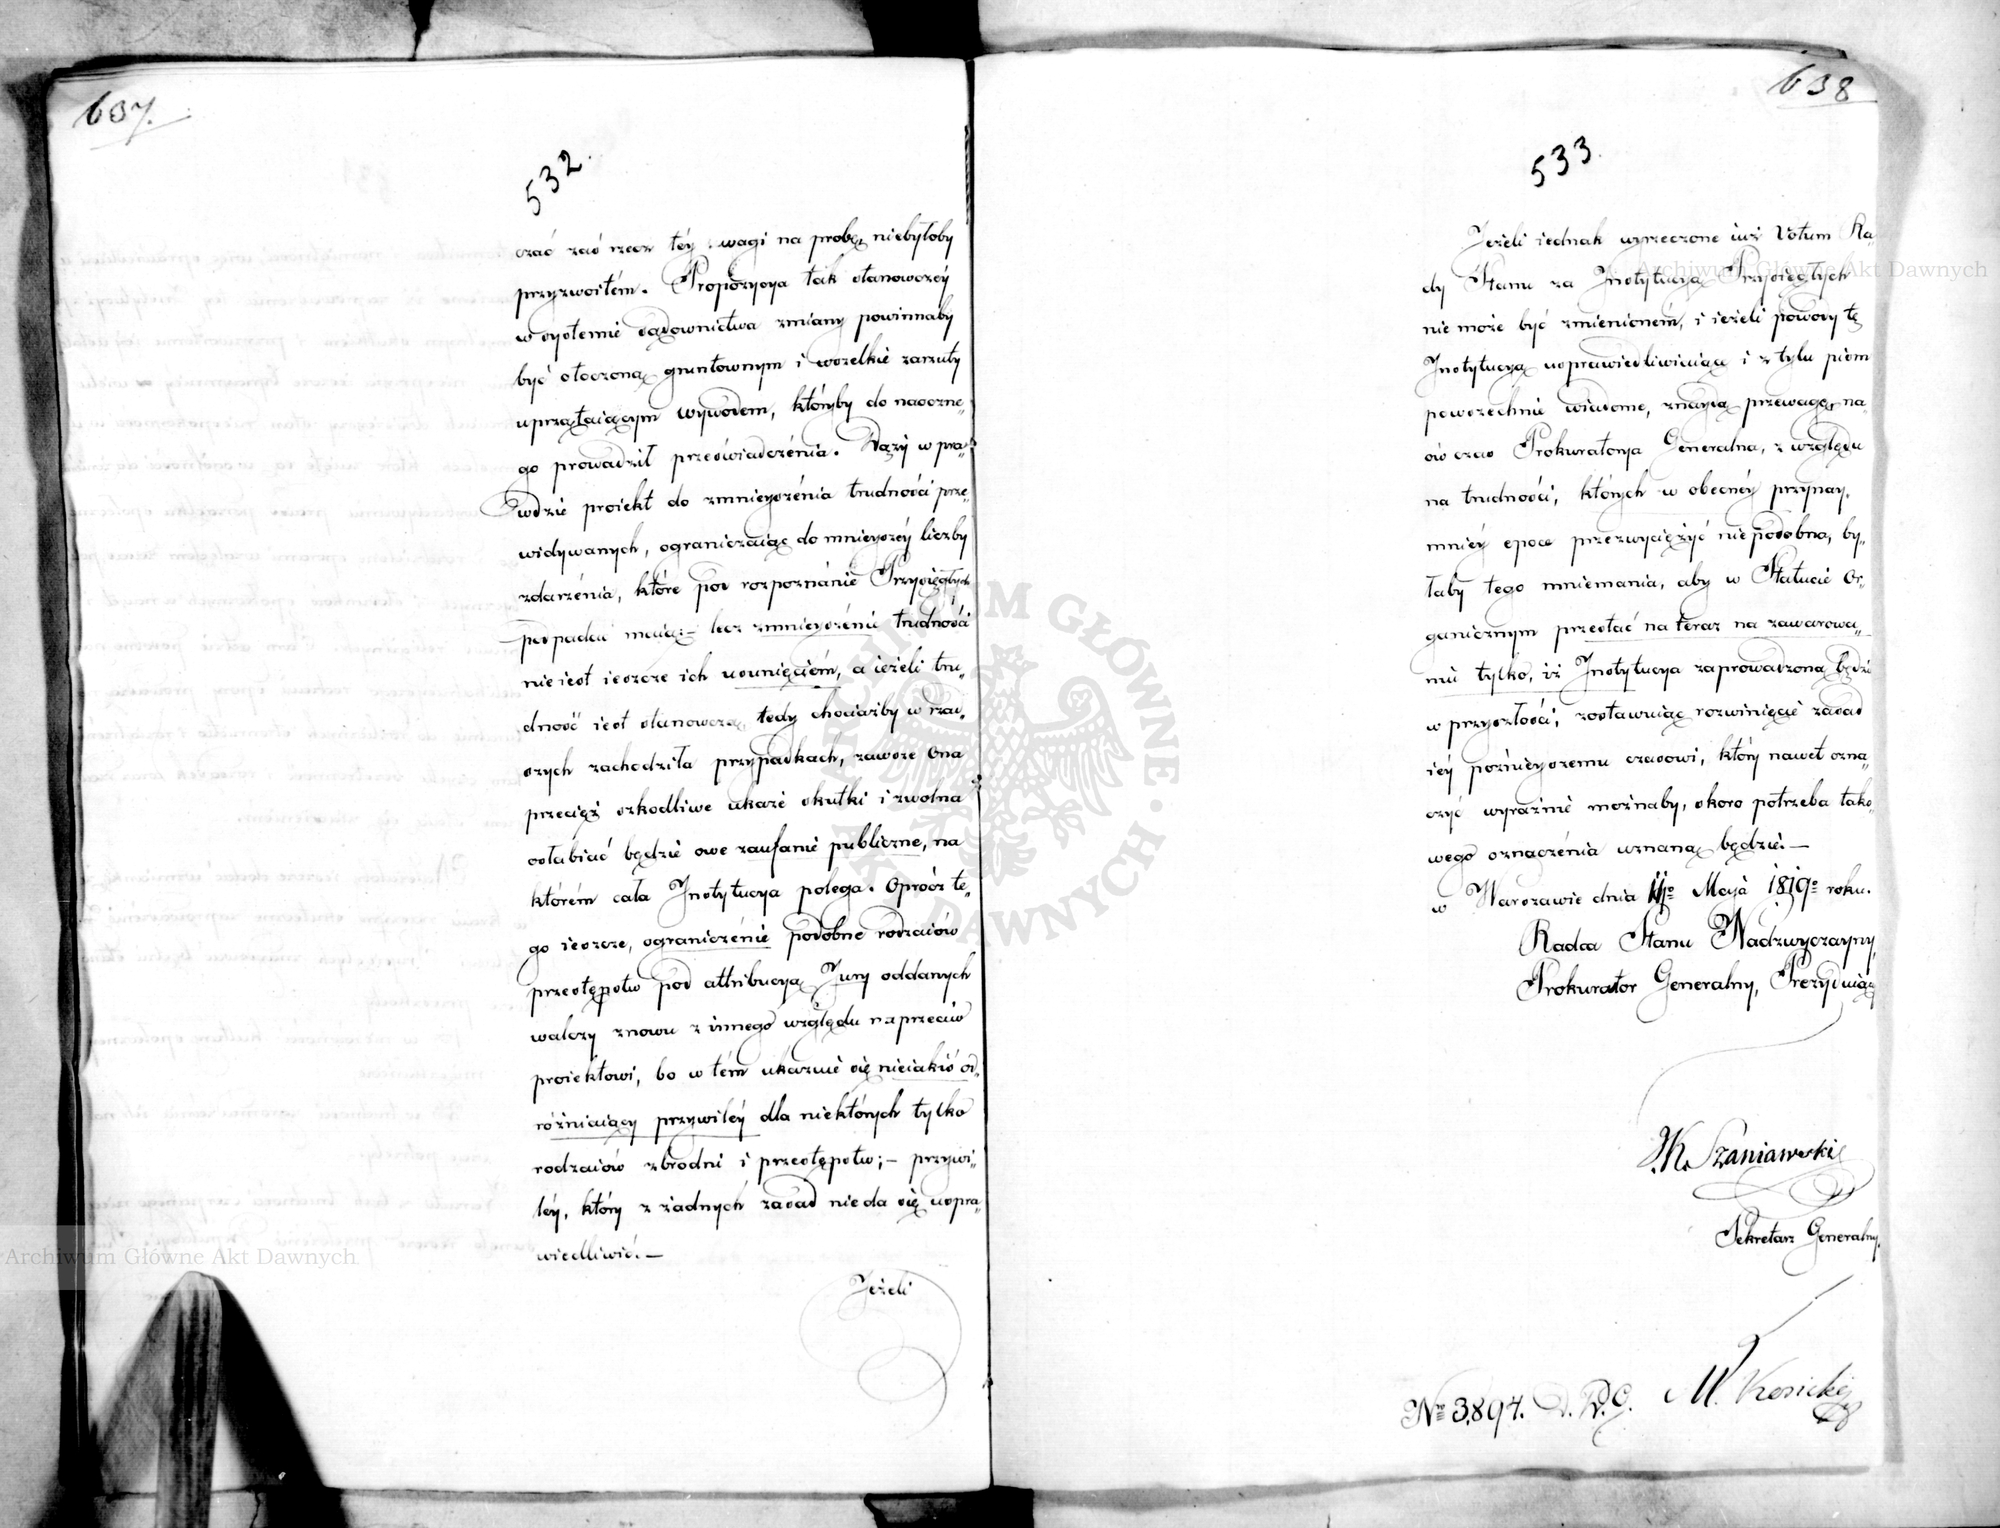 637.
532.
czać zaś rzecz téy wagi na probę, niebyłoby
przyzwoitém. Propozycya tak stanowczéy
w systemie sądownictwa zmiany powinnaby
być otoczoną gruntownym i wszelkie zarzuty
uprzątaiącym wywodem, któryby do naoczne„
go prowadził przeświadczénia. Dąży w pra„
wdzie proiekt do zmnieyszénia trudności prze„
widywanych, ograniczaiąc do mnieyszéy liczby
zdarzénia, które pod rozpoznánie Przysięgłych
podpadać maią;— lecz zmnieyszénie trudności
nie iest ieszcze ich usunięciém, a ieżeli tru„
dność iest stanowczą, tedy chociażby w rzad„
szych zachodziła przypadkach, zawsze ona
przecięż szkodliwe ukaże skutki i zwolna
osłabiać będzie owe zaufanie publiczne, na
którém cała Instytucya polega. Oprócz te„
go ieszcze, ograniczénie podobne rodzaiów
przestępstw pod attribucyą Jury oddanych
walczy znowu z innego względu naprzeciw
proiektowi, bo w tém ukazuie się nieiakiś od„
różniaiący przywiléy dla niektórych tylko
rodzaiów zbrodni i przestępstw;— przywi„
léy, który z żadnych zasad nie da się uspra„
wiedliwić.—
Jeżeli
638
533.
Jeżeli iednak wyrzeczone iuż Votum Ra„
dy Stanu za Instytucyą Przysięgłych
nie może być zmienioném, i ieżeli powody tę
Instytucyą usprawiedliwiaiące i z tylu pism
powszechnie wiadome, znaydą przewagę, na„
ów czas Prokuratorya Generalna, z względu
na trudności, których w obecnéy przynay„
mniéy epoce przezwyciężyć niepodobna, by„
łaby tego mniemania, aby w Statucie Or„
ganicznym przestać na teraz na zawarowa„
niu tylko, iż Instytucya zaprowadzoną będzie
w przyszłości, zostawuiąc rozwinięcie zasad
iéy poźnieyszemu czasowi, który nawet ozna„
czyć wyraźnie możnaby, skoro potrzeba tako„
wego oznaczénia uznaną będzie.—
w Warszawie dnia 11º Maja 1819º roku.
Radca Stanu Nadzwyczayny,
Prokurator Generalny, Prezyduiący
J.K. Szaniawski
Sekretarz Generalny.
Nº 3,894. D. P. G. M. Kosicki
Archiwum Główne Akt Dawnych
Archiwum Główne Akt Dawnych
ARCHIWUM GŁÓWNE · AKT DAWNYCH ·